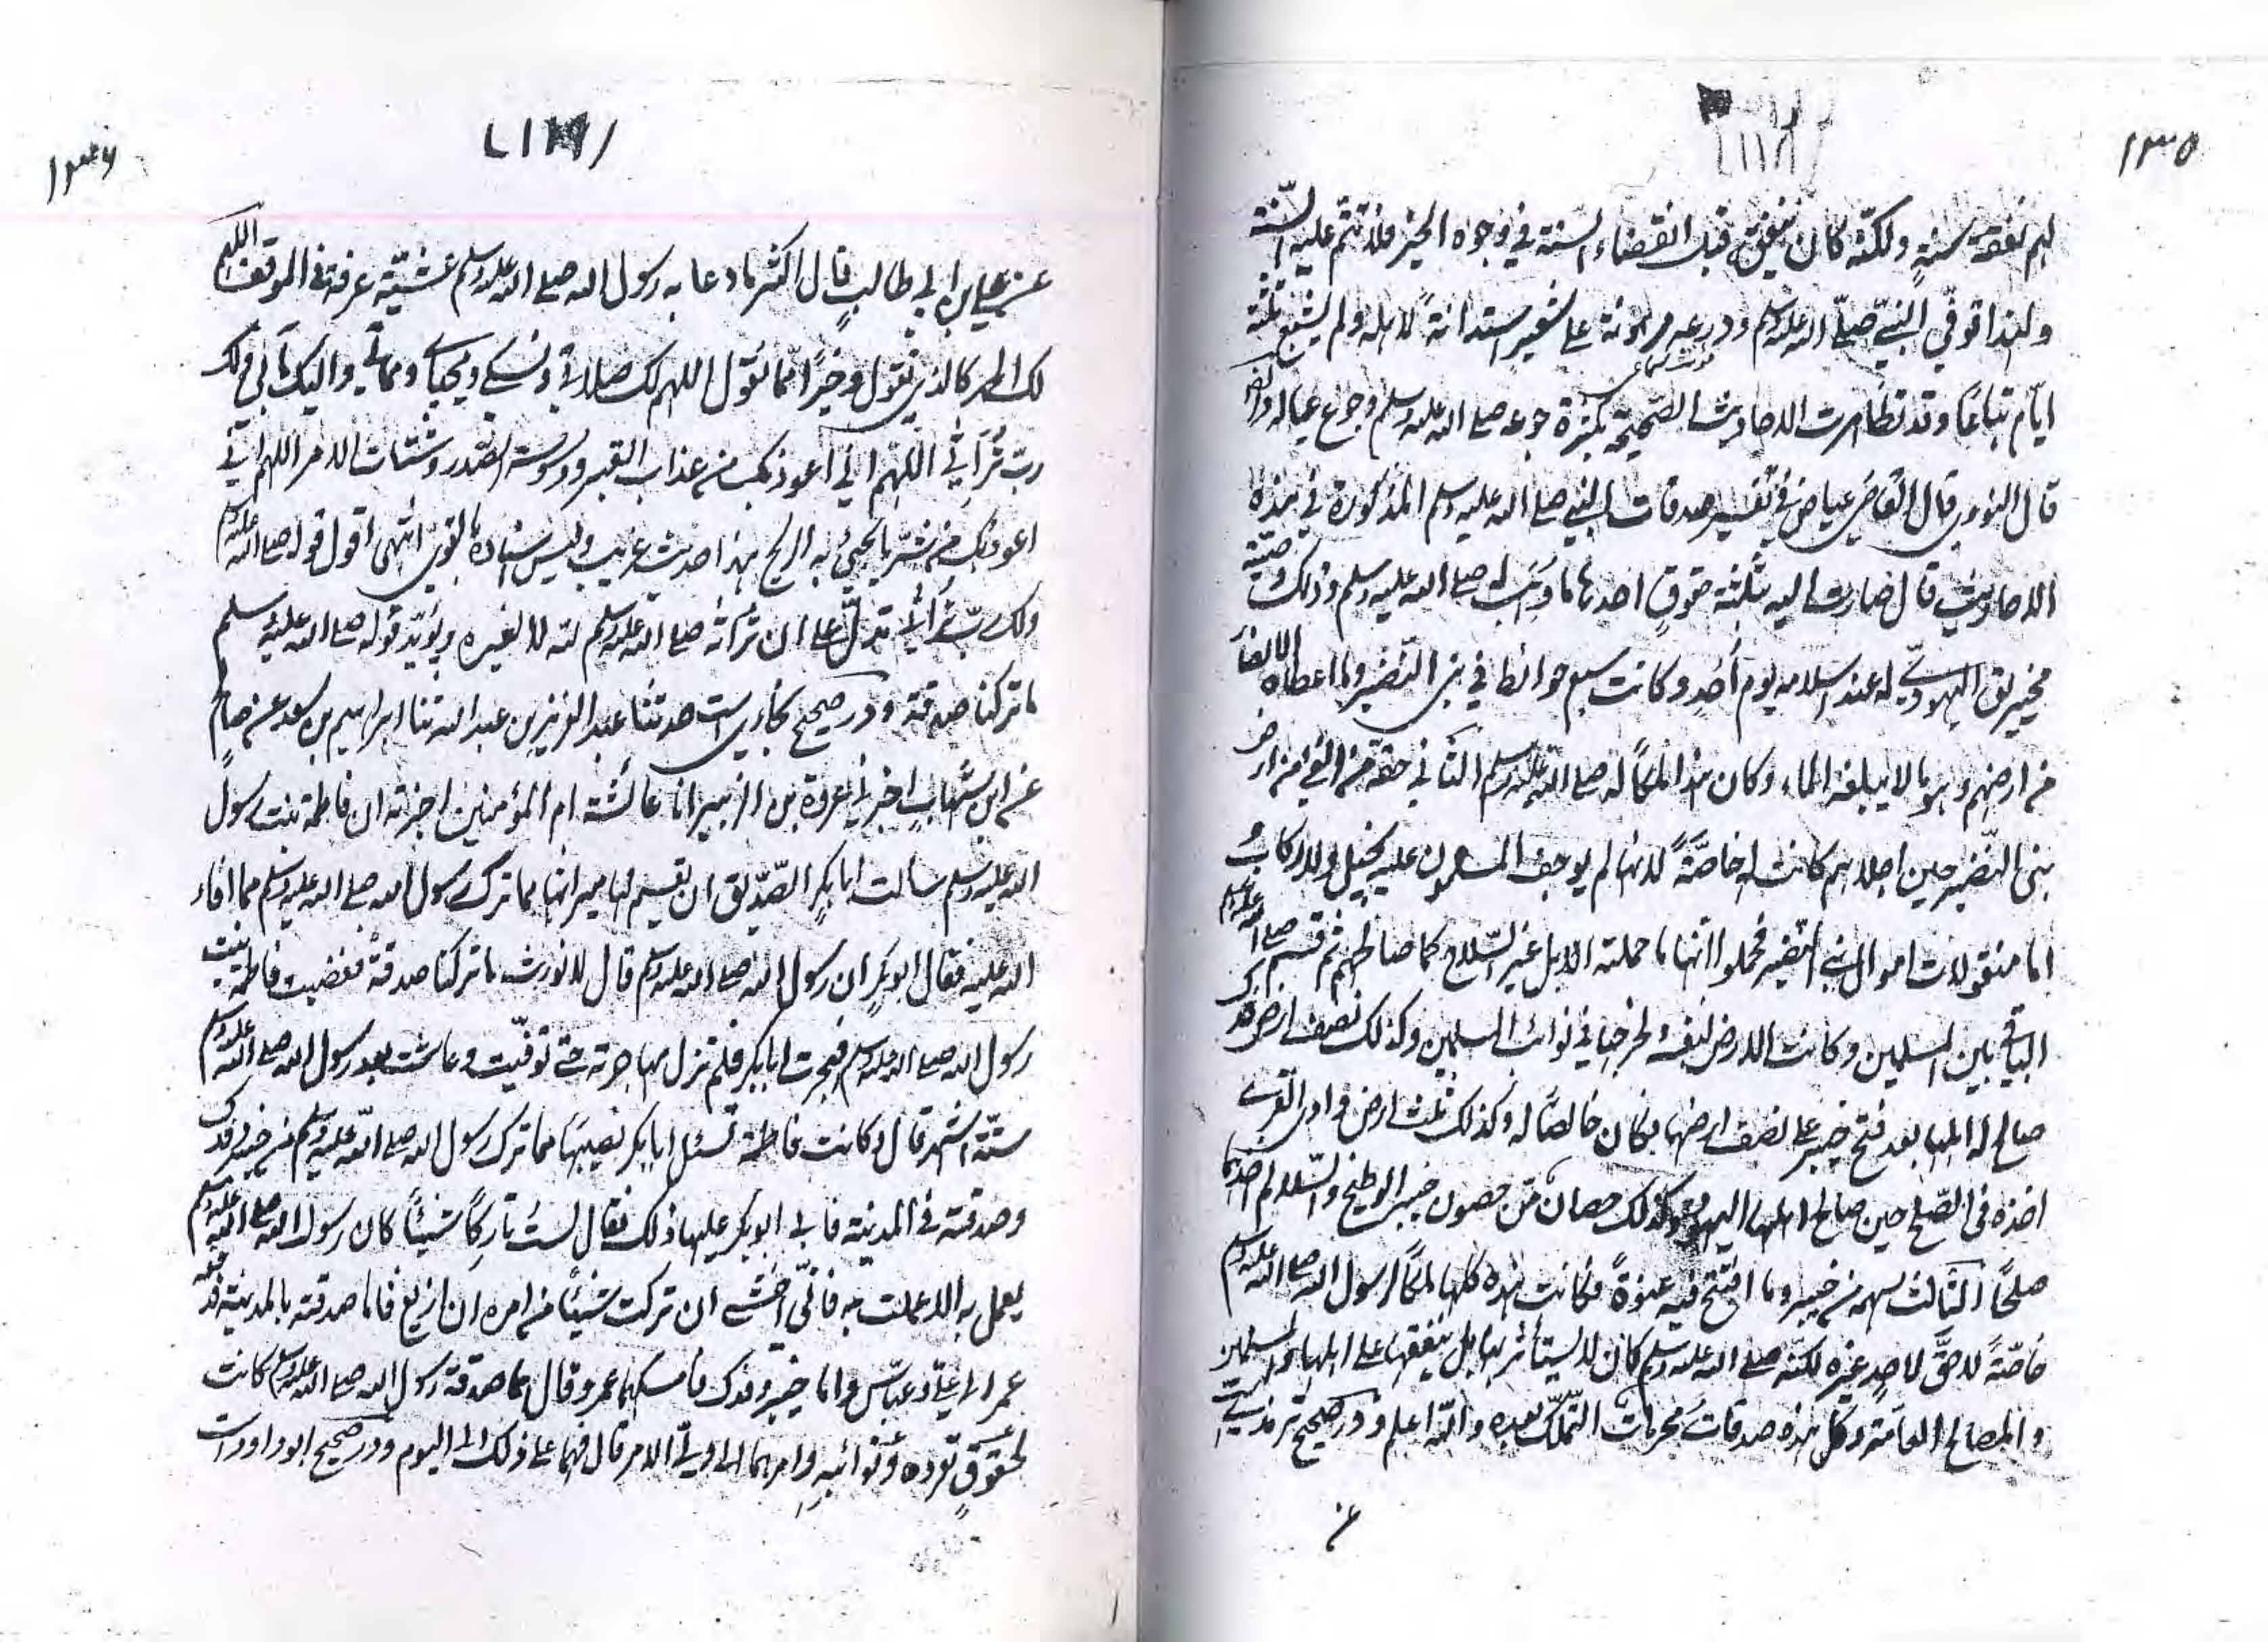 ١٣٥
لهم نفقة سنةٍ ولكنّه كان ينفق قبل انقضاء السنة في وجوه الخير فلا تتم عليه السّنة
ولهذا توفّي النبيّ صلّى الله عليه وسلم ودرعه مرهونة على شعيرٍ استدانةً لاهله ولم يشبع ثلثة
ايّام تباعًا وقد تظاهرت الاحاديث الصّحيحة بكثرة جوعه صلى الله عليه وسلم وجوع عياله وايضا
قال النووي قال القاضي عياض في تفسير صدقات النبي صلى الله عليه وسلم المذكورة في هذه
الاحاديث قال صارت اليه بثلثة حقوق احدها ما وُهب له صلى الله عليه وسلم وذلك وصيّة
مخيريق اليهوديّ له عند اسلامه يوم اُحدٍ وكانت سبع حوائط في بني النّضير وما اعطاه الانصار
من ارضهم وهو ما لا يبلغه الماء وكان هذا ملكاً له صلى الله عليه وسلم الثاني حقّه من الفئ من ارض
بنى النّضير حين اجلاهم كانت له خاصّةً لانها لم يوجف المسلمون عليه بخيل ولا ركاب و
اما منقولات اموال بني النضير فحملوا منها ما حملته الابل غير السّلاح كما صالحهم ثم قسم صلى الله عليه وسلم
الباقي بين المسلمين وكانت الارض لنفسه ويخرجها في نوائب المسلمين وكذلك نصف ارض فدك
صالح له اهلها بعد فتح خيبر على نصف ارضها فكان خالصًا له وكذلك ثلث ارض وادي القرى
اخذه فى الصّلح حين صالح اهلها اليهود وكذلك حصان من حصون خيبر الوطيح والسّلالم اخذهما
صلحًا الثالث سهمه من خيبر وما افتتح فيه عنوةً فكانت هذه كلها ملكًا لرسول الله صلى الله عليه وسلم
خاصّةً لا حقّ لاحدٍ غيره لكنّه صلى الله عليه وسلم كان لا يستأثر بها بل ينفقها على اهله والمسلمين
والمصالح العامة وكل هذه صدقات محرمات التّملّك بعده والله اعلم ودر صحيح ترمذيست
عن
١٣٦
عن علي بن ابي طالبٍ قال اكثر ما دعا به رسول الله صلى الله عليه وسلم عشيّة عرفة في الموقف اللهم
لك الحمد كالذي نقول وخيرًا مّما نقول اللهم لك صلاتى ونسكي ومحياي ومماتي واليك مآبي ولك
ربّ تُراثي اللّهم اني اعوذ بك من عذاب القبر ووسوسة الصّدر وشتات الامر اللهم اني
اعوذ بك من شرّ ما يجيئ به الريح هذا حديث غريب وليس اسناده بالقوي انتهى اقول قوله صلى الله عليه وسلم
ولك ربّ تراثى تدلّ على ان تراثه صلى الله عليه وسلم لله لا لغيره ويؤيّد قوله صلى الله عليه وسلم
ما تركنا صدقة ودر صحيح بخاري است حدثنا عبد العزيز بن عبد الله ثنا ابراهيم بن سعد عن صالح
عن ابن شهابٍ اخبرني عروة بن الزبير ان عائشة ام المؤمنين اخبرته ان فاطمة بنت رسول
الله عليه وسلم سالت ابا بكرٍ الصّدّيق ان يقسم لها ميراثها مما ترك رسول الله صلى الله عليه وسلم مما افاء
الله عليه فقال ابو بكرٍ ان رسول الله صلى الله عليه وسلم قال لا نورث ما تركنا صدقةٌ فغضبت فاطمة بنت
رسول الله صلى الله عليه وسلم فهجرت ابا بكر فلم تزل مهاجرته حتى توفّيت وعاشت بعد رسول الله صلى الله عليه وسلم
ستّة اشهر قال وكانت فاطمة تسئل ابا بكر نصيبها مما ترك رسول الله صلى الله عليه وسلم من خيبر وفدك
وصدقته في المدينة فابى ابو بكر عليها ذلك فقال لستُ تاركًا شيئاً كان رسول الله صلى الله عليه وسلم
يعمل به الا عملت به فانّي اخشى ان تركت شيئًا من امره ان ازيغ فاما صدقته بالمدينة فدفعه
عمر الى عليّ وعبّاس واما خيبر وفدك فامسكهما عمر وقال هما صدقة رسول الله صلى الله عليه وسلم كانت
لحقوقٍ تعروه ونوائبهِ وامرهما الى وليّ الامر قال فهما على ذلك الى اليوم ودر صحيح ابو داود است